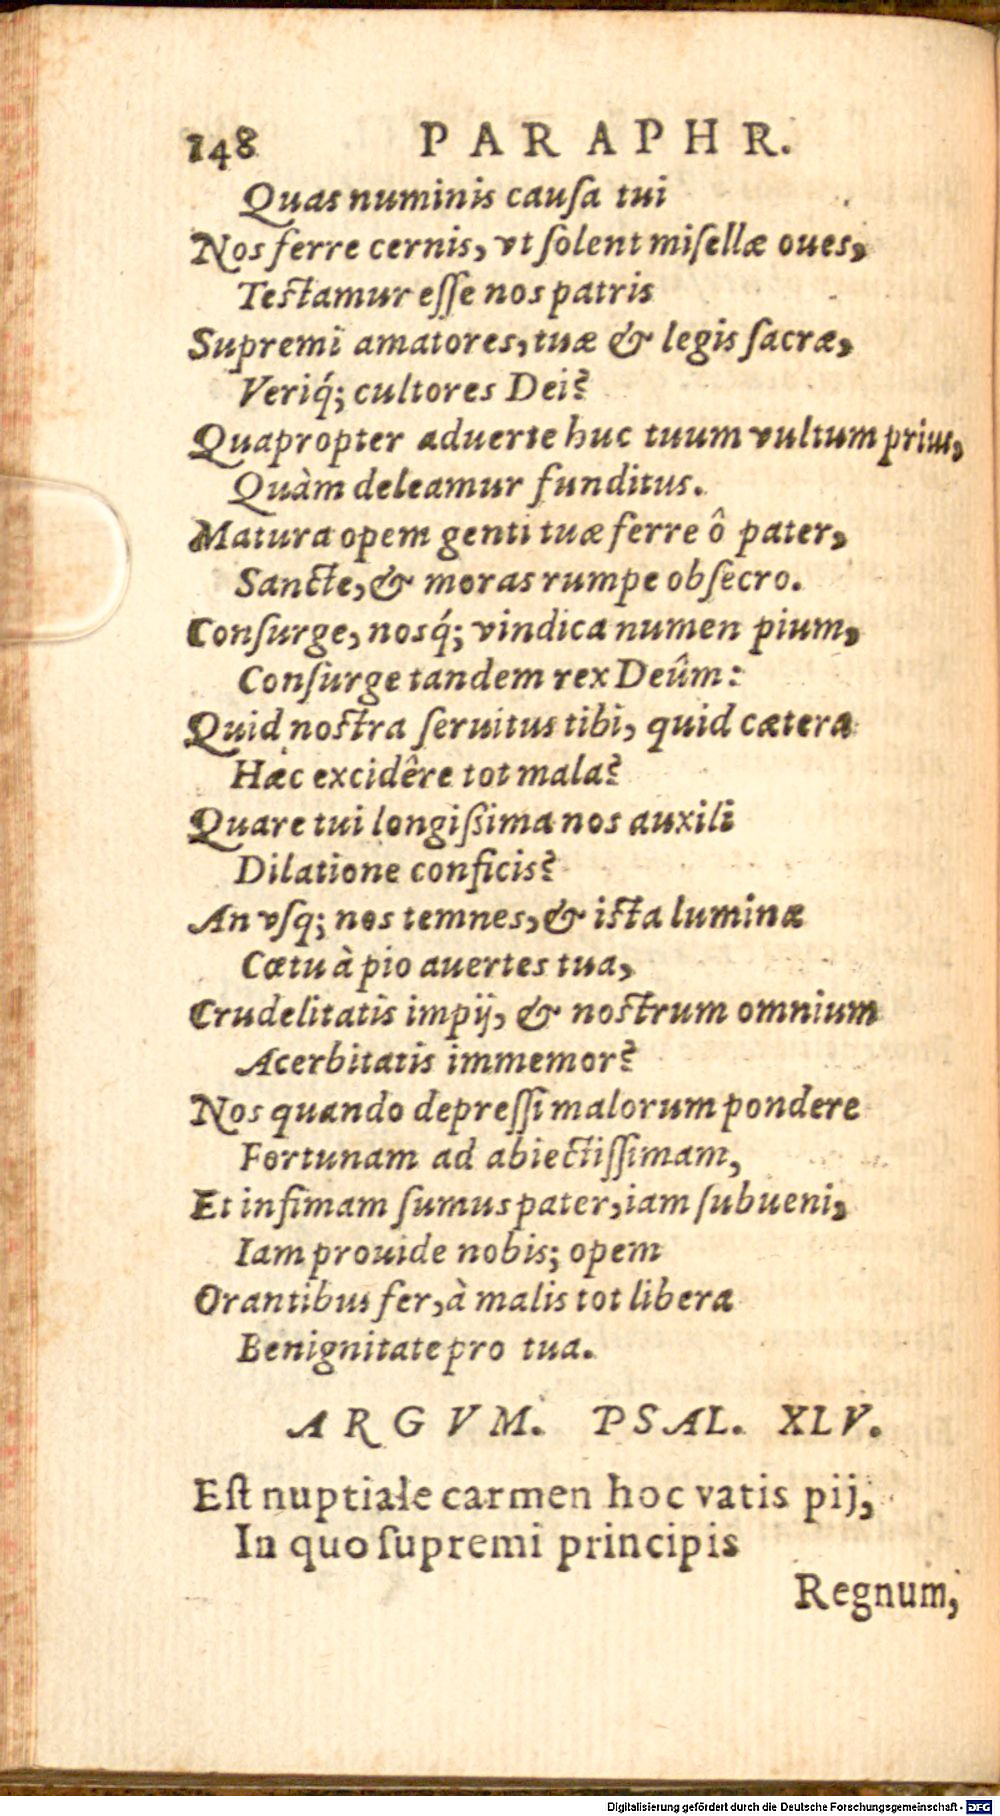 148 PARAPHR.
Quas numinis cauſa tui
Nos ferre cernis, vt ſolent miſellæ oues,
Teſtamur eſſe nos patris
Supremi amatores, tuæ & legis ſacræ,
Veriq́; cultores Dei?
Quapropter aduerte huc tuum vultum prius,
Quàm deleamur funditus.
Matura opem genti tuæ ferre ô pater,
Sancte, & moras rumpe obſecro.
Conſurge, nosq́; vindica numen pium,
Conſurge tandem rex Deûm:
Quid noſtra ſeruitus tibi, quid cætera
Hæc excidêre tot mala?
Quare tui longiſsima nos auxili
Dilatione conficis?
An vſq; nos temnes, & iſta lumina
Cœtu à pio auertes tua,
Crudelitatis impij, & noſtrum omnium
Acerbitatis immemor?
Nos quando depreſſi malorum pondere
Fortunam ad abiectiſſimam,
Et infimam ſumus pater, iam ſubueni,
Iam prouide nobis; opem
Orantibus fer, à malis tot libera
Benignitate pro tua.
ARGVM. PSAL. XLV.
Eſt nuptiale carmen hoc vatis pij,
In quo ſupremi principis
Regnum,
Digitalisierung gefördert durch die Deutsche Forschungsgemeinschaft - DFG